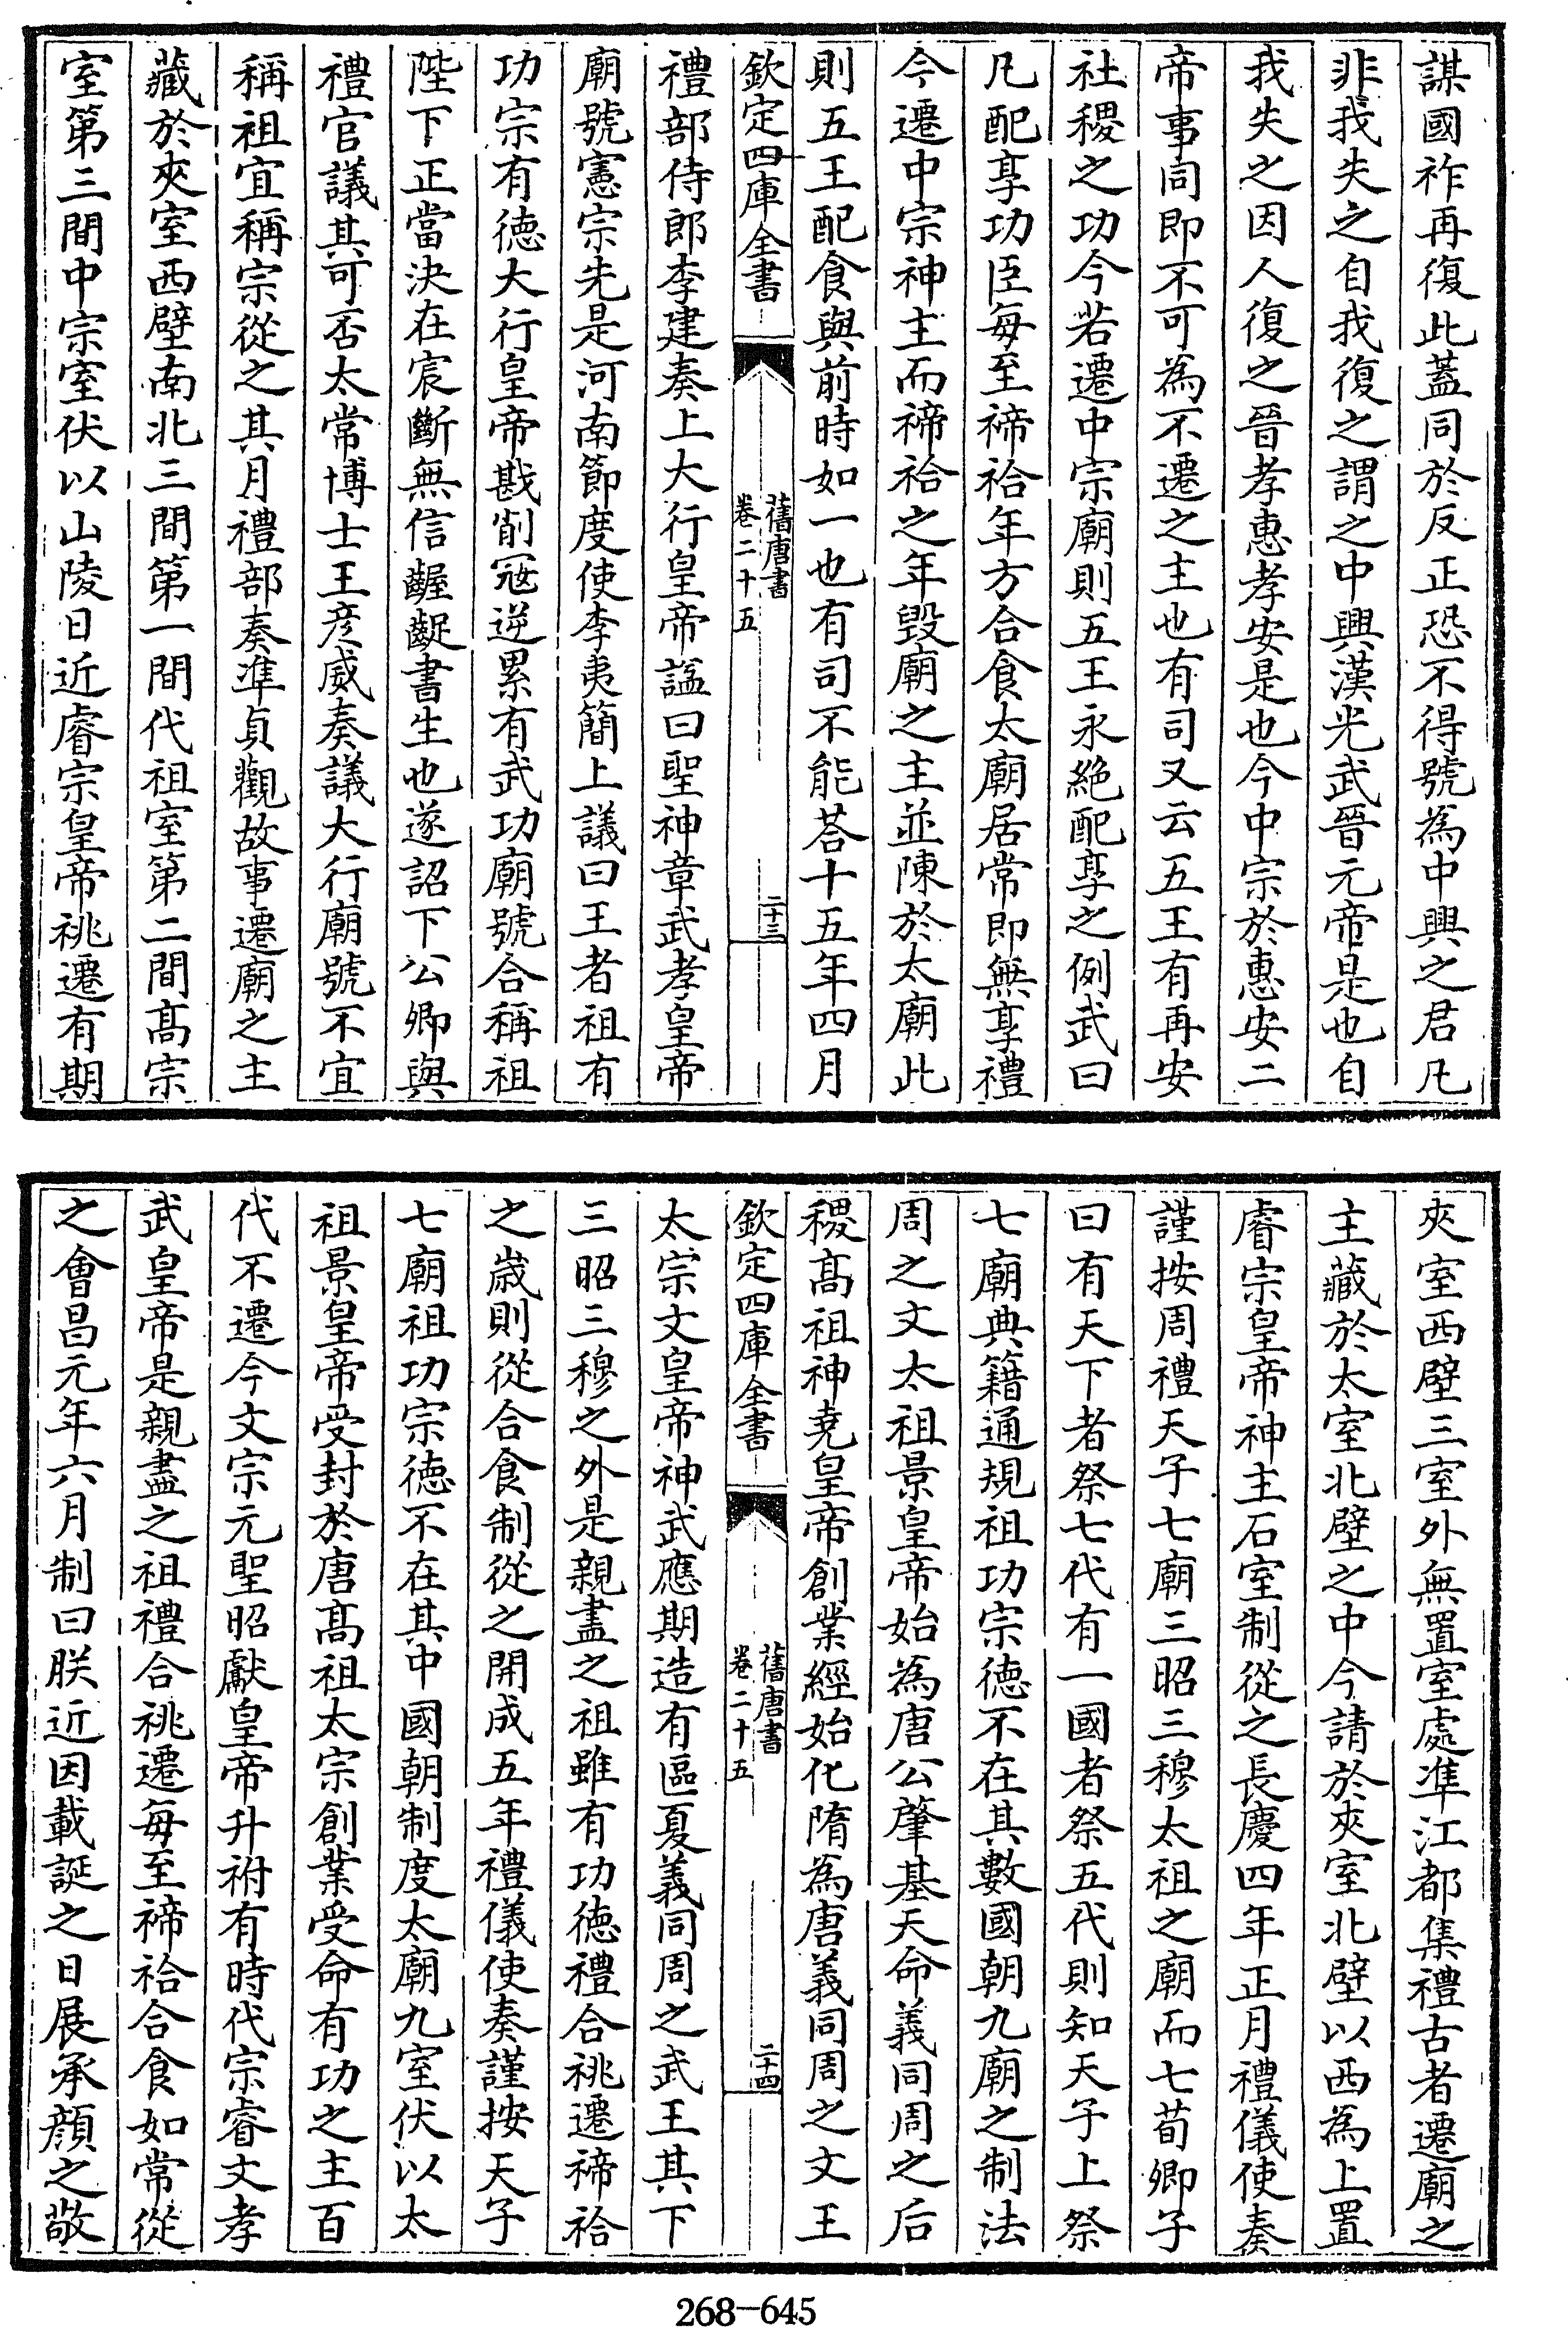 謀國祚再復此蓋同於反正恐不得號為中興之君凡
非我失之自我復之謂之中興漢光武晉元帝是也自
我失之因人復之晉孝惠孝安是也今中宗於惠安二
帝事同即不可為不遷之主也有司又云五王有再安
社稷之功今若遷中宗廟則五王永絶配享之例武曰
凡配享功臣每至禘祫年方合食太廟居常即無享禮
今遷中宗神主而禘祫之年毀廟之主並陳於太廟此
則五王配食與前時如一也有司不能荅十五年四月
欽定四庫全書
舊唐書
卷二十五
二十三
禮部侍郎李建奏上大行皇帝諡曰聖神章武孝皇帝
廟號憲宗先是河南節度使李夷簡上議曰王者祖有
功宗有徳大行皇帝戡剪冦逆累有武功廟號合稱祖
陛下正當決在宸斷無信齷齪書生也遂詔下公卿與
禮官議其可否太常博士王彦威奏議大行廟號不宜
稱祖宜稱宗從之其月禮部奏凖貞觀故事遷廟之主
藏於夾室西壁南北三間第一間代祖室第二間髙宗
室第三間中宗室伏以山陵日近睿宗皇帝祧遷有期
夾室西壁三室外無置室處凖江都集禮古者遷廟之
主藏於太室北壁之中今請於夾室北壁以西為上置
睿宗皇帝神主石室制從之長慶四年正月禮儀使奏
謹按周禮天子七廟三昭三穆太祖之廟而七荀卿子
曰有天下者祭七代有一國者祭五代則知天子上祭
七廟典籍通規祖功宗徳不在其數國朝九廟之制法
周之文太祖景皇帝始為唐公肇基天命義同周之后
稷髙祖神堯皇帝創業經始化隋為唐義同周之文王
欽定四庫全書
舊唐書
卷二十五
二十四
太宗文皇帝神武應期造有區夏義同周之武王其下
三昭三穆之外是親盡之祖雖有功徳禮合祧遷禘祫
之歳則從合食制從之開成五年禮儀使奏謹按天子
七廟祖功宗徳不在其中國朝制度太廟九室伏以太
祖景皇帝受封於唐髙祖太宗創業受命有功之主百
代不遷今文宗元聖昭獻皇帝升祔有時代宗睿文孝
武皇帝是親盡之祖禮合祧遷每至禘祫合食如常從
之會昌元年六月制曰朕近因載誕之日展承顔之敬
268-645